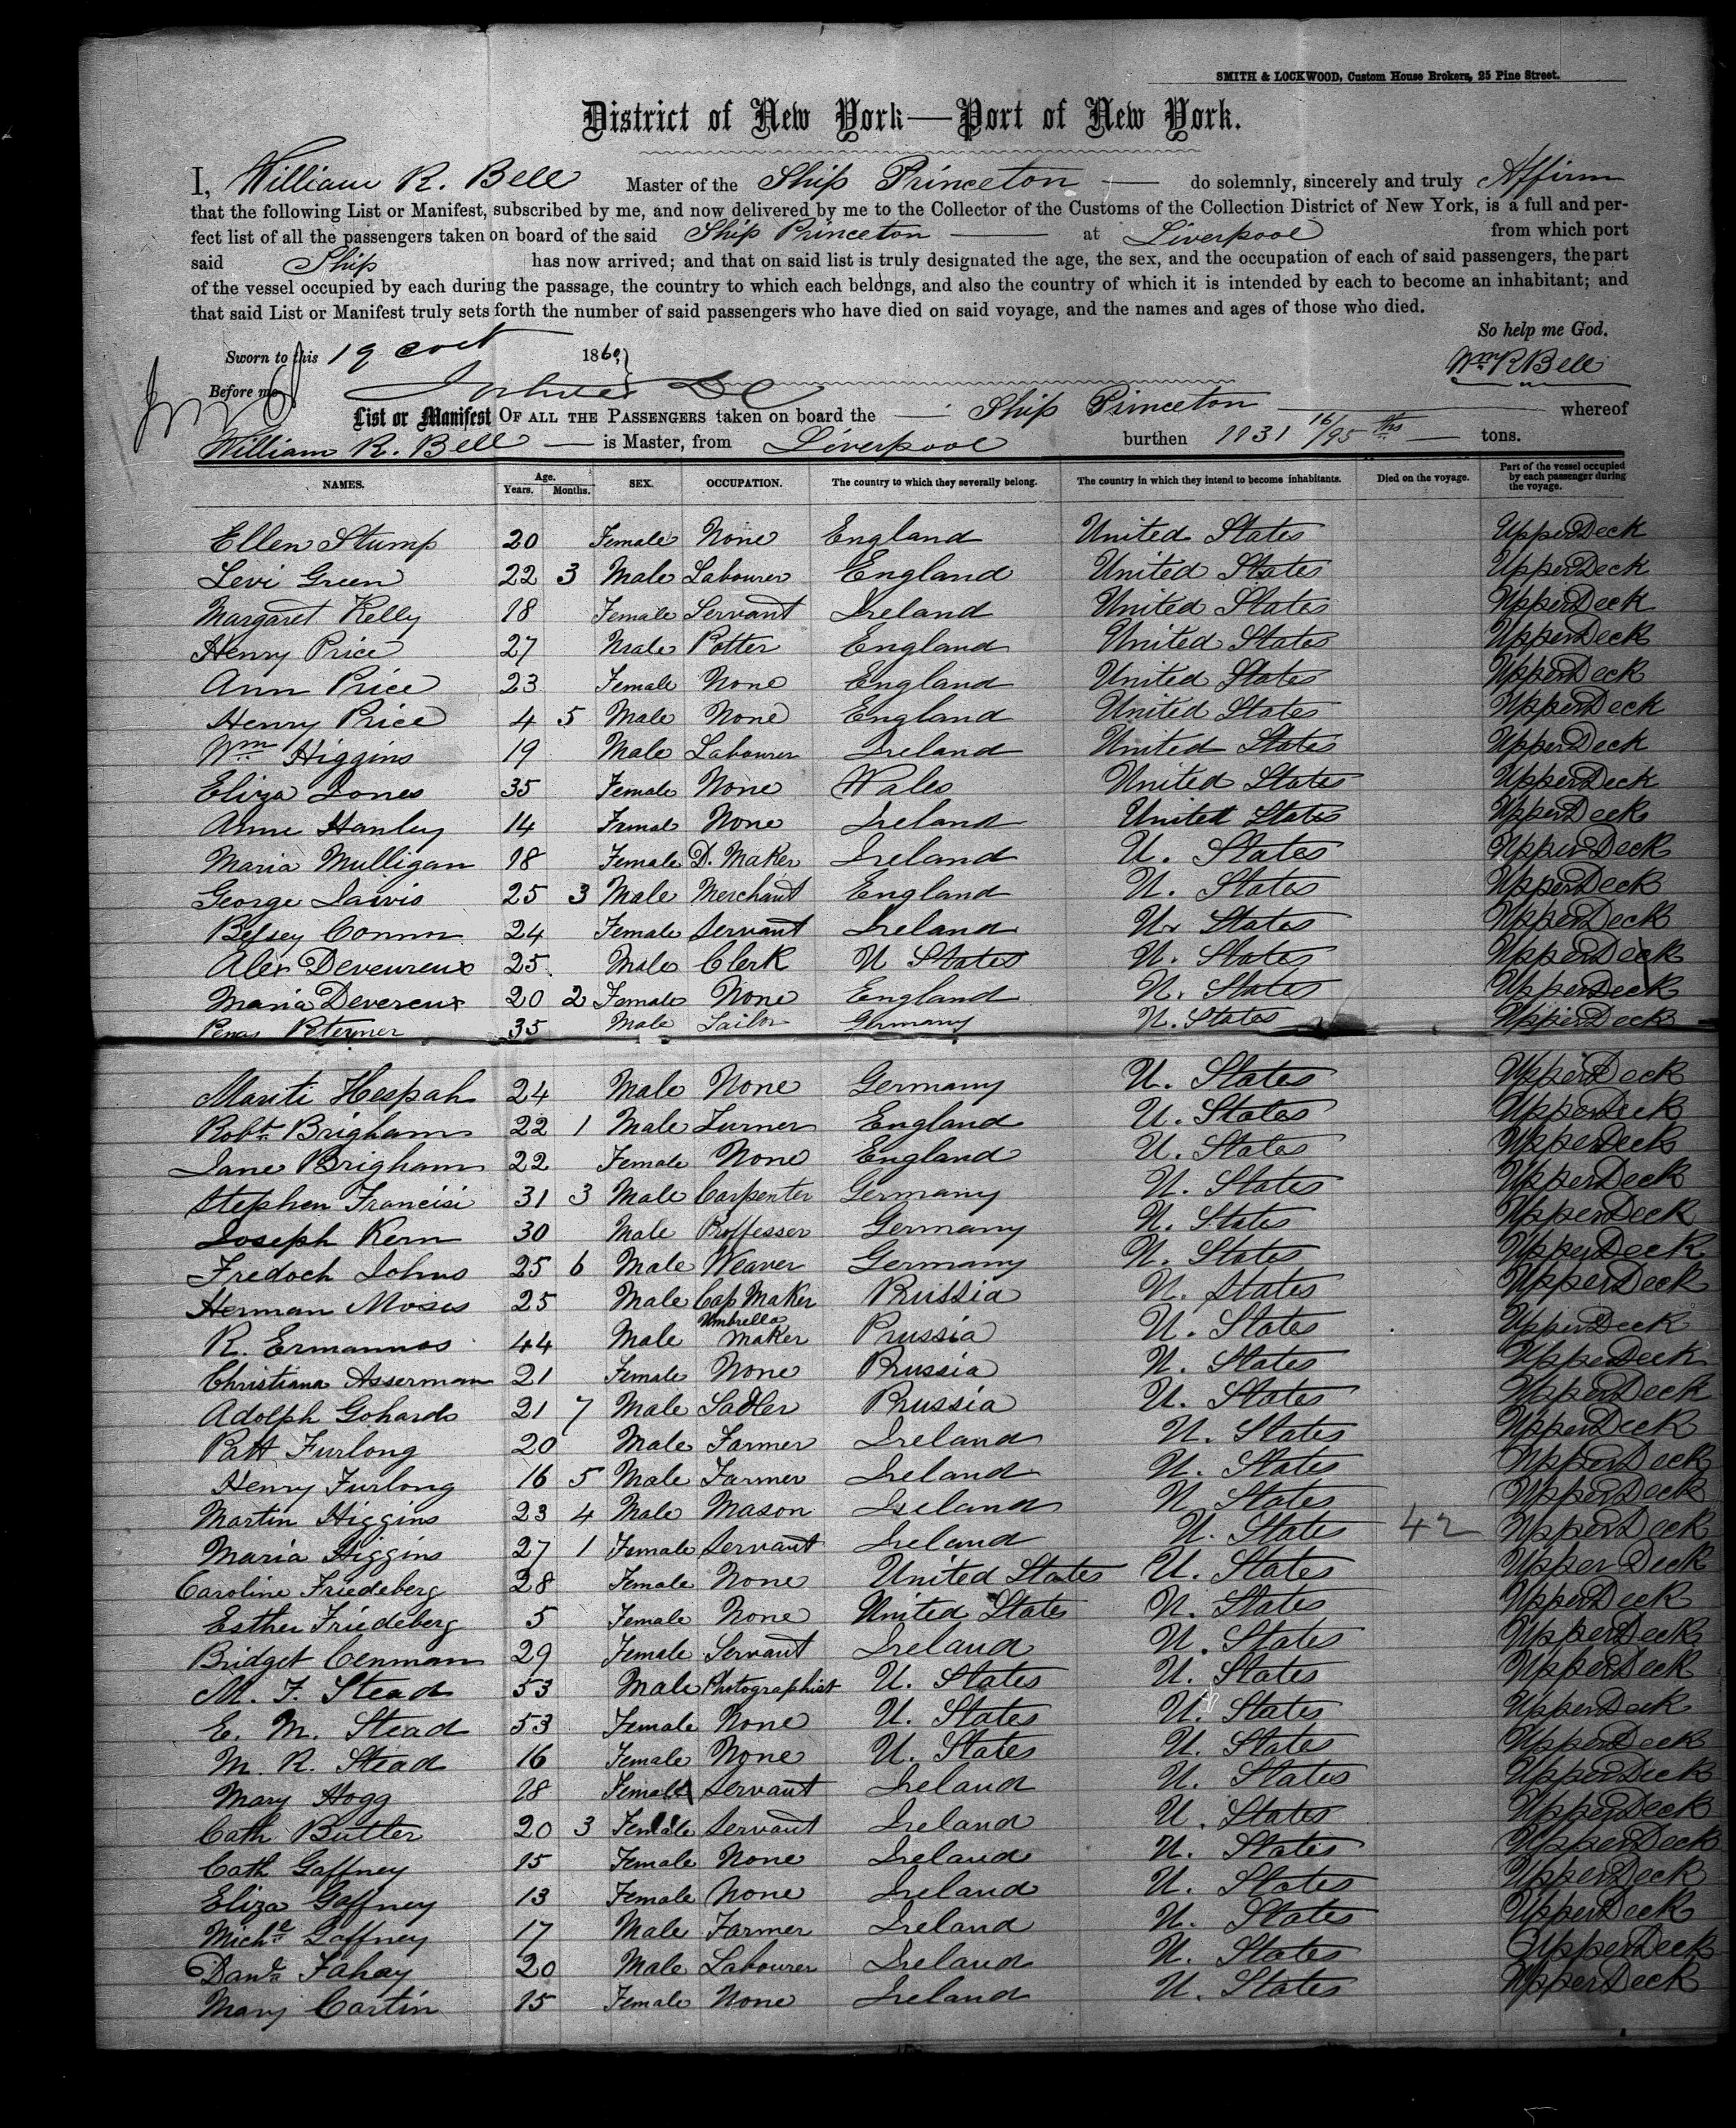 SMITH & LOCKWOOD, Custom House Brokers, 25 Pine Street.
District of New York—Port of New York.
I, William R. Bell Master of the Ship Princeton — do solemnly, sincerely and truly Affirm
that the following List or Manifest, subscribed by me, and now delivered by me to the Collector of the Customs of the Collection District of New York, is a full and per-
fect list of all the passengers taken on board of the said Ship Princeton — at Liverpool from which port
said Ship has now arrived; and that on said list is truly designated the age, the sex, and the occupation of each of said passengers, the part
of the vessel occupied by each during the passage, the country to which each belongs, and also the country of which it is intended by each to become an inhabitant; and
that said List or Manifest truly sets forth the number of said passengers who have died on said voyage, and the names and ages of those who died.
So help me God.
Sworn to this 19 Oct 1860
Wm R Bell
Before me
List or Manifest OF ALL THE PASSENGERS taken on board the — Ship Princeton — whereof
William R. Bell — is Master, from Liverpool burthen 1131 16/95 ths — tons.
NAMES. Age. Years. Months. SEX. OCCUPATION. The country to which they severally belong. The country in which they intend to become inhabitants. Died on the voyage. Part of the vessel occupied by each passenger during the voyage.
Ellen Stump 20 Female None England United States Upper Deck
Levi Green 22 3 Male Labourer England United States Upper Deck
Margaret Kelly 18 Female Servant Ireland United States Upper Deck
Henry Price 27 Male Potter England United States Upper Deck
Ann Price 23 Female None England United States Upper Deck
Henry Price 4 5 Male None England United States Upper Deck
Wm Higgins 19 Male Labourer Ireland United States Upper Deck
Eliza Jones 35 Female None Wales United States Upper Deck
Anne Hanley 14 Female None Ireland United States Upper Deck
Maria Mulligan 18 Female D. Maker Ireland U. States Upper Deck
George Jarvis 25 3 Male Merchant England U. States Upper Deck
Betsey Connor 24 Female Servant Ireland U. States Upper Deck
Alex Deveureux 25 Male Clerk U States U. States Upper Deck
Maria Devereux 20 2 Female None England U. States Upper Deck
Petermer 35 Male Tailor Germany U. States Upper Deck
Mariti Hespah 24 Male None Germany U. States Upper Deck
Robt Brigham 22 1 Male Turner England U. States Upper Deck
Jane Brigham 22 Female None England U. States Upper Deck
Stephen Francisi 31 3 Male Carpenter Germany U. States Upper Deck
Joseph Kern 30 Male Proffesser Germany U. States Upper Deck
Fredoch Johns 25 6 Male Weaver Germany U. States Upper Deck
Herman Moses 25 Male Cap Maker Prussia U. States Upper Deck
R. Ermannos 44 Male Umbrella Maker Prussia U. States Upper Deck
Christiana Asserman 21 Female None Prussia U. States Upper Deck
Adolph Gohards 21 7 Male Sadler Prussia U. States Upper Deck
Patt Furlong 20 Male Farmer Ireland U. States Upper Deck
Henry Furlong 16 5 Male Farmer Ireland U. States Upper Deck
Martin Higgins 23 4 Male Mason Ireland U. States Upper Deck
Maria Higgins 27 1 Female Servant Ireland U. States 42 Upper Deck
Caroline Friedeberg 28 Female None United States U. States Upper Deck
Esther Friedeberg 5 Female None United States U. States Upper Deck
Bridget Cenman 29 Female Servant Ireland U. States Upper Deck
M. F. Stead 53 Male Photographist U. States U. States Upper Deck
E. M. Stead 53 Female None U. States U. States Upper Deck
M. R. Stead 16 Female None U. States U. States Upper Deck
Mary Hogg 18 Female Servant Ireland U. States Upper Deck
Cath Butler 20 3 Female Servant Ireland U. States Upper Deck
Cath Gaffney 15 Female None Ireland U. States Upper Deck
Eliza Gaffney 13 Female None Ireland U. States Upper Deck
Michl Gaffney 17 Male Farmer Ireland U. States Upper Deck
Danl Fahay 20 Male Labourer Ireland U. States Upper Deck
Mary Cartin 15 Female None Ireland U. States Upper Deck